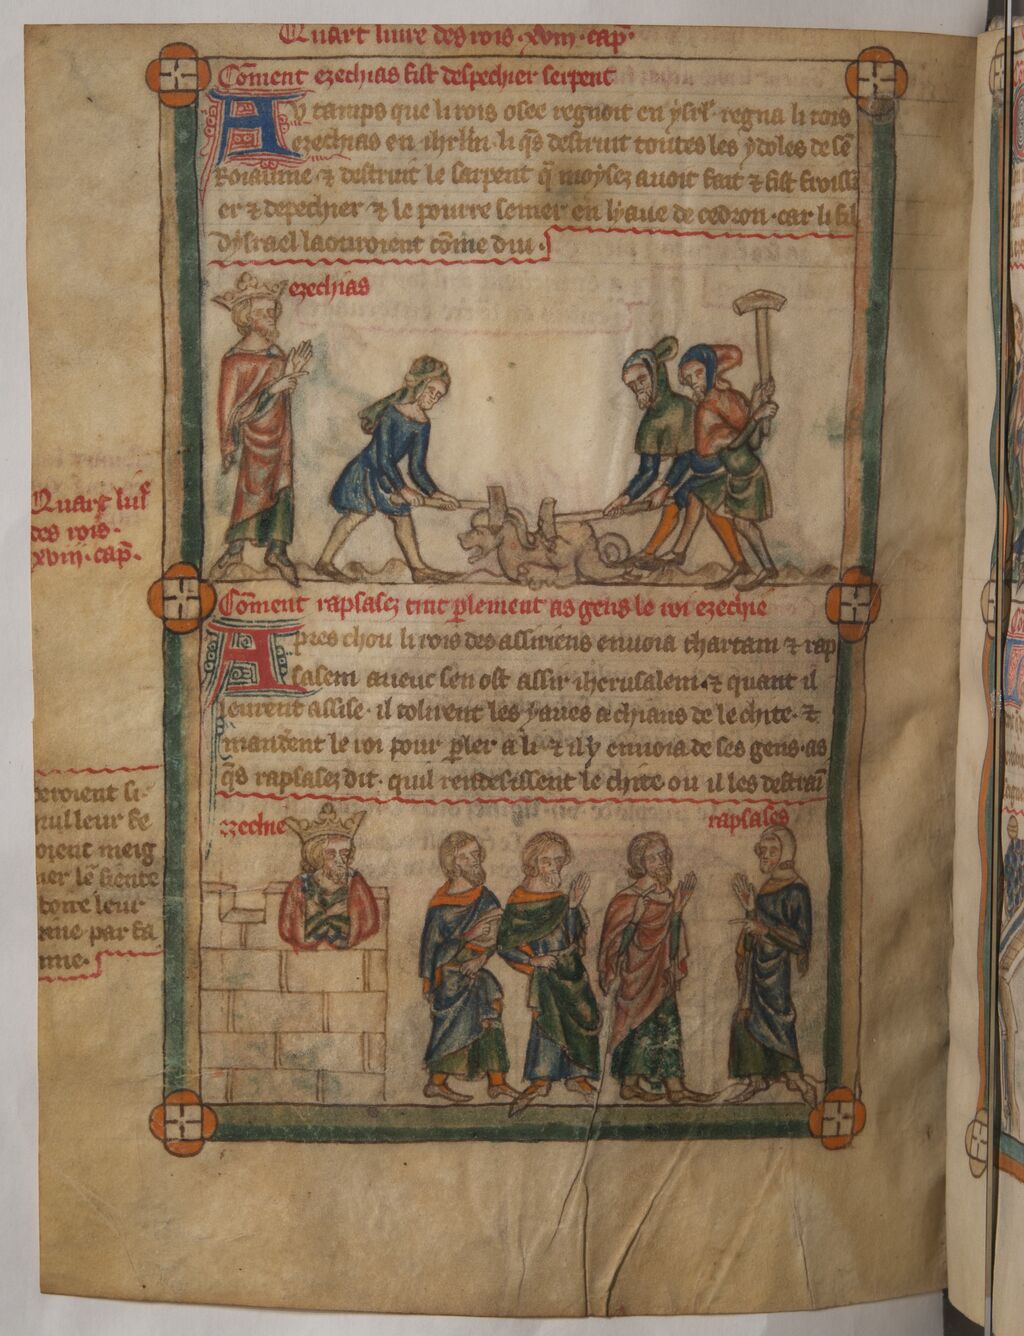 Quart liure des rois · xviii · cap̃·
Cōment ezechias fist despechier serpent
Au tamps que li rois osee regnoit en ysrł· regna li rois
ezechias en ihrłm· li q̄s destruit toutes les ydoles de sē
Roiaume ⁊ destruit le sarpent q̄ moysez auoit fait ⁊ fist froiss
er ⁊ depechier ⁊ le pourre semer en lyaue de cedron · car li fil
dysrael laouroient cōme diu ·
ezechias
Quart liur̄
des rois·
xviii· cap̃·
Cōment rapsasez tint p̱lement as gens le roi ezechie
Apres chou li rois des assiriens enuoia thartam ⁊ rap
sasem aueuc sen ost assir iherusalem · ⁊ quant il
leurent assise · il tolirent les yaues a chiaus de le chite · ⁊
mandēent le roi pour p̱ler a li ⁊ il y enuoia de ses gens · as
q̄s rapsasez dit · quil rendesissent le chite ou il les destrau
ezechie
rapsases
eroient si
nul leur
oient meig
ier lē fiente
toire leur
ine par fa
ine·